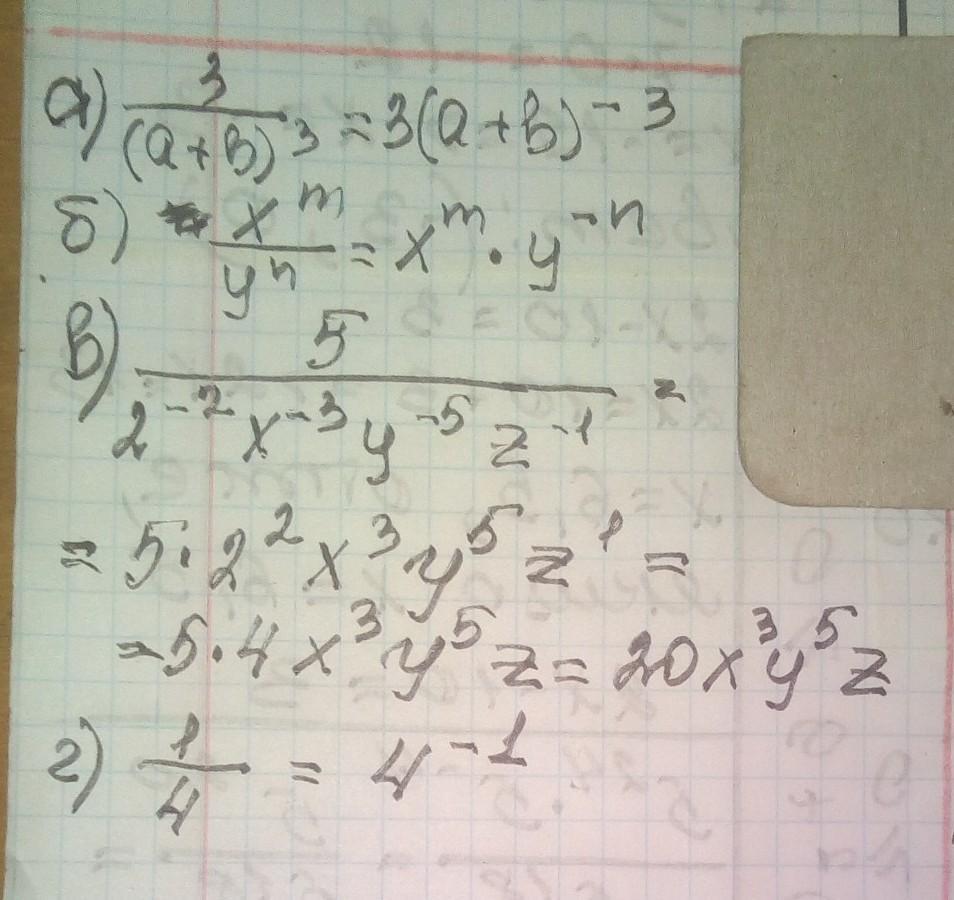 а) 3/(a+b)³ = 3(a+b)⁻³
б) xᵐ/yⁿ = xᵐ · y⁻ⁿ
в) 5/(2⁻² x⁻³ y⁻⁵ z⁻¹) =
= 5 · 2² x³ y⁵ z¹ =
= 5 · 4 x³ y⁵ z = 20x³y⁵z
г) 1/4 = 4⁻¹